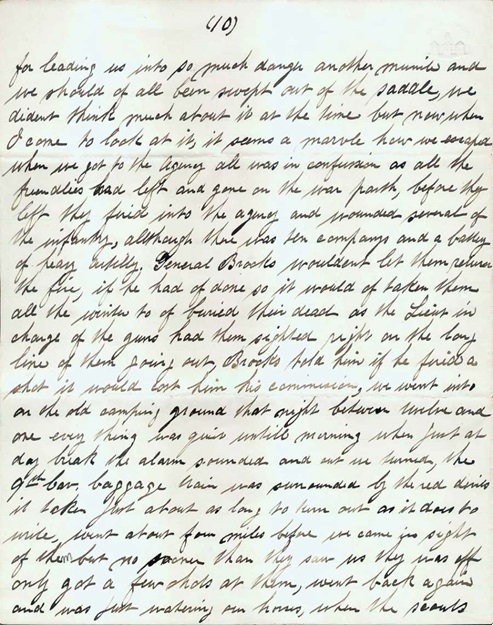 (10)
for leading us into so much danger another munite and
we should of all been swept out of the saddle, we
dident think much about it at the time but now when
I come to look at it, it seems a marvle how we escaped
when we got to the Agency all was in confussion as all the
friendlies had left and gone on the war path, before they
left they fired into the agency and wounded several of
the infantry, although there was ten companys and a battery
of heavy artilly, General Brooks wouldent let them return
the fire, if he had of done so it would of taken them
all the winter to of buried their dead as the Lieut in
charge of the guns had them sighted right on the long
line of them going out, Brooks told him if he fired a
shot it would cost him his commission, we went into
on the old camping ground that night between twelve and
one every thing was quiet untill morning when just at
day break the alarm sounded and out we turned, the
9th Cav, baggage train was surrounded by the red divils
it takes just about as long to turn out as it does to
write, went about four miles before we came in sight
of them but no sooner than they saw us they was off
only got a few shots at them, went back again
and was just watering our horses, when the scouts